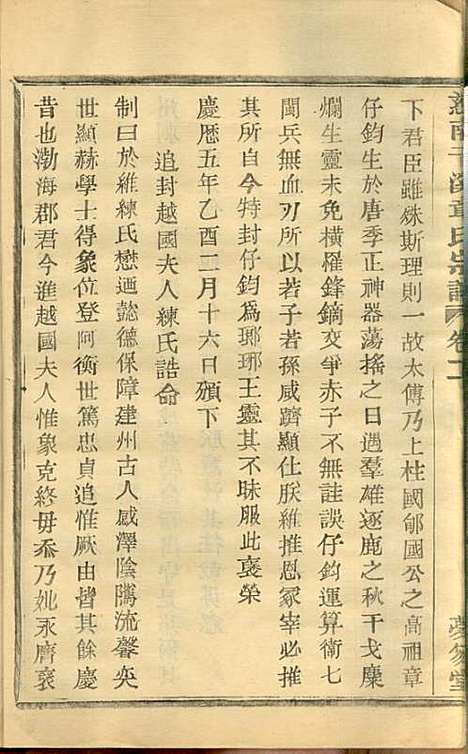 遂南干溪章氏宗譜 卷二
夢筆堂
下君臣雖殊斯理則一故太傅乃上柱國郇國公之高祖章
仔鈞生於唐季正神器蕩搖之日遇羣雄逐鹿之秋干戈糜
爛生靈未免橫罹鋒鏑交爭赤子不無詿誤仔鈞運算衛七
閩兵無血刃所以若子若孫咸躋顯仕朕維推恩冢宰必推
其所自今特封仔鈞爲瑯琊王靈其不昧服此褒榮
慶厯五年乙酉二月十六日頒下
追封越國夫人練氏誥命
制曰於維練氏懋迺懿德保障建州古人感澤陰隲流馨奕
世顯赫學士得象位登阿衡世篤忠貞追惟厥由皆其餘慶
昔也渤海郡君今進越國夫人惟象克終毋忝乃妣永膺褒